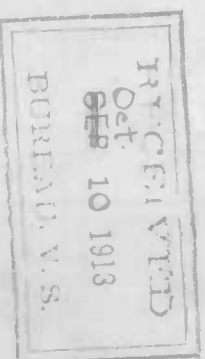 RECEIVED
Oct.
SEP 10 1913
BUREAU V. S.